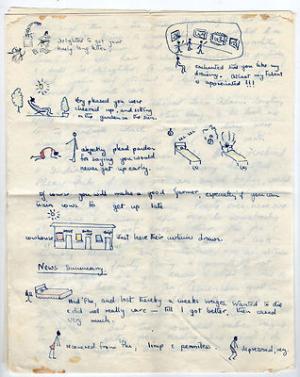 delighted to get your
lovely long letter!
enchanted that you like my
drawing. At last my talent
is appreciated!!!
V. pleased you were
cheered up, and sitting
in the garden in the sun.
abjectly plead pardon
for saying you would
never get up early.
(1)
(2)
Of course you will make a good farmer, especially if you can
train cows to get up late
cowhouse
that have their curtains drawn.
News Summary
Had 'flu, and lost thereby a weeks wages. Wanted to die
& did not really care — till I got better, then cared
very much.
recovered from 'flu, limp & penniless.
depressed, very